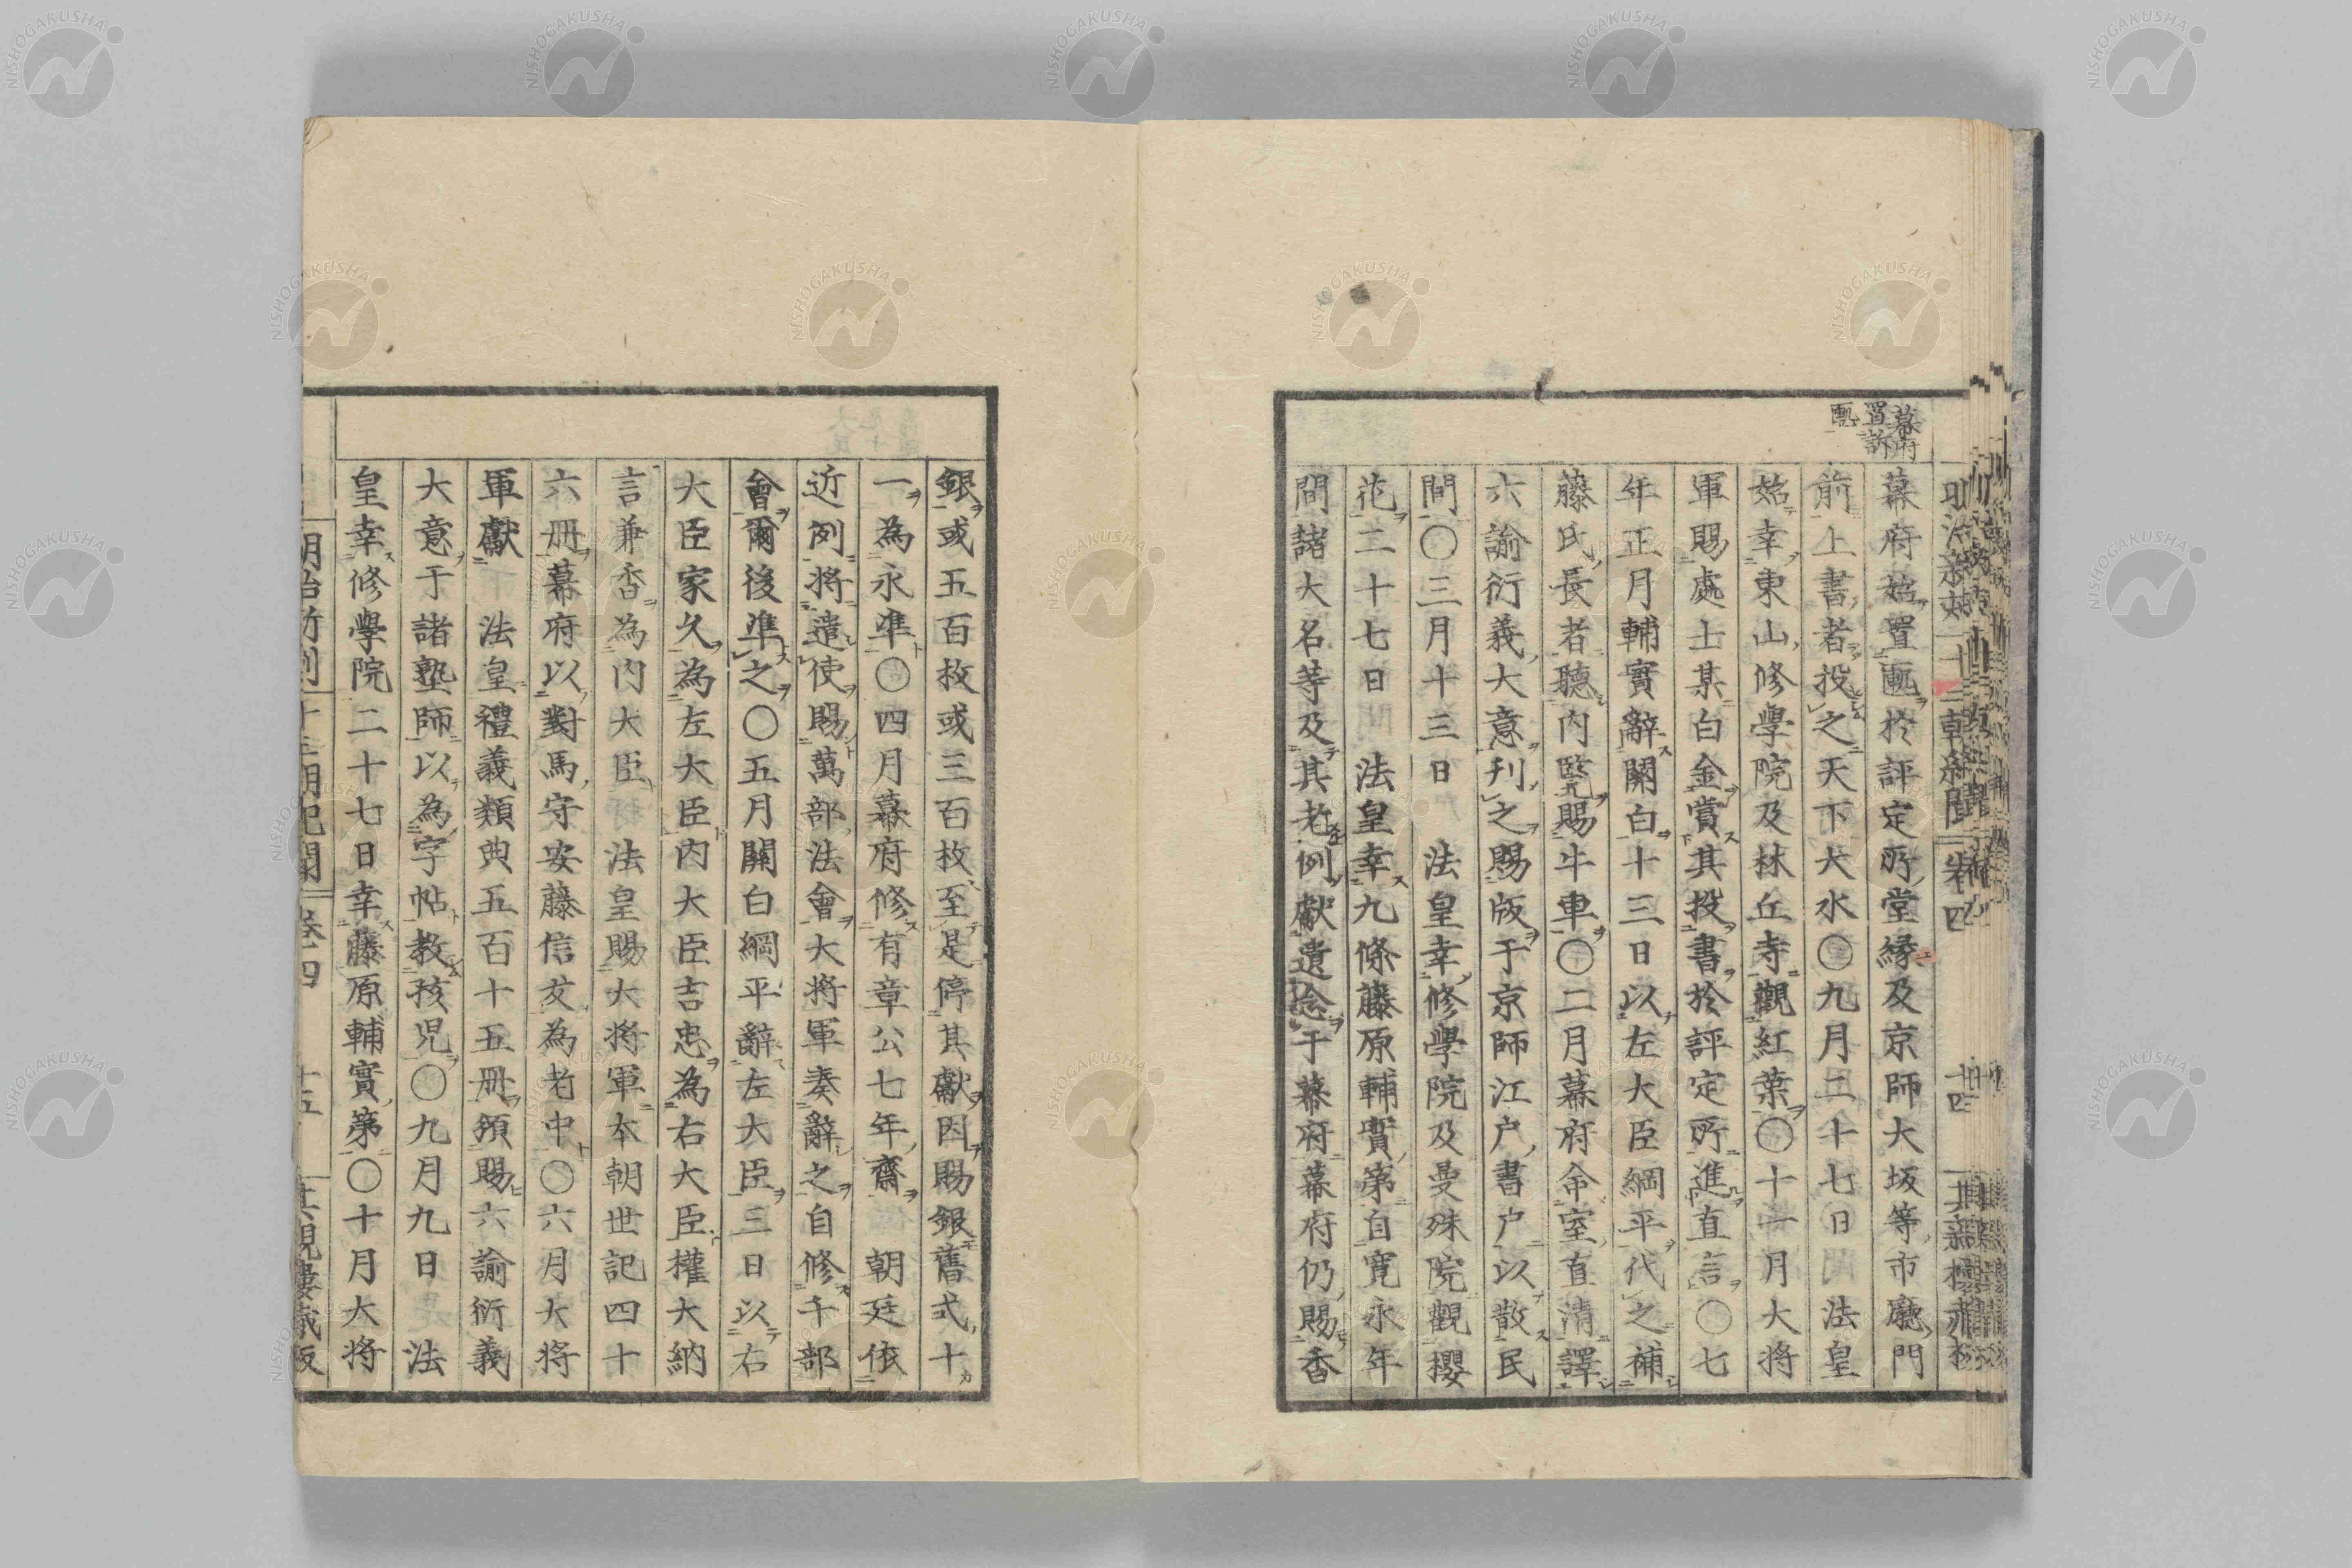 幕府
置訴
匭
幕府始置匭於評定所堂緣及京師大坂等市廳門
前上書者投之天下大水〇九月二十七日法皇
始幸東山修學院及林丘寺觀紅葉〇十一月大將
軍賜處士某白金賞其投書於評定所進直言〇七
年正月輔實辭關白十三日以左大臣綱平代之補
藤氏長者聽內覽賜牛車〇二月幕府命室直清譯
六諭衍義大意刊之賜版于京師江戶書戶以散民
間〇三月十三日 法皇幸修學院及曼殊院觀櫻
花二十七日 法皇幸九條藤原輔實第自寬永年
間諸大名等及其老例獻遺念于幕府幕府仍賜香
銀或五百枚或三百枚至是停其獻因賜銀舊式十
一為永準〇四月幕府修有章公七年齋 朝廷依
近例將遣使賜萬部法會大將軍奏辭之自修千部
會爾後準之〇五月關白綱平辭左大臣三日以右
大臣家久為左大臣內大臣吉忠為右大臣權大納
言兼香為內大臣 法皇賜大將軍本朝世記四十
六冊幕府以對馬守安藤信友為老中〇六月大將
軍獻 法皇禮義類典五百十五冊頒賜六諭衍義
大意于諸塾師以為字帖教孩児〇九月九日 法
皇幸修學院二十七日幸藤原輔實第〇十月大將
明治新刻 十三朝紀聞 卷四 十五